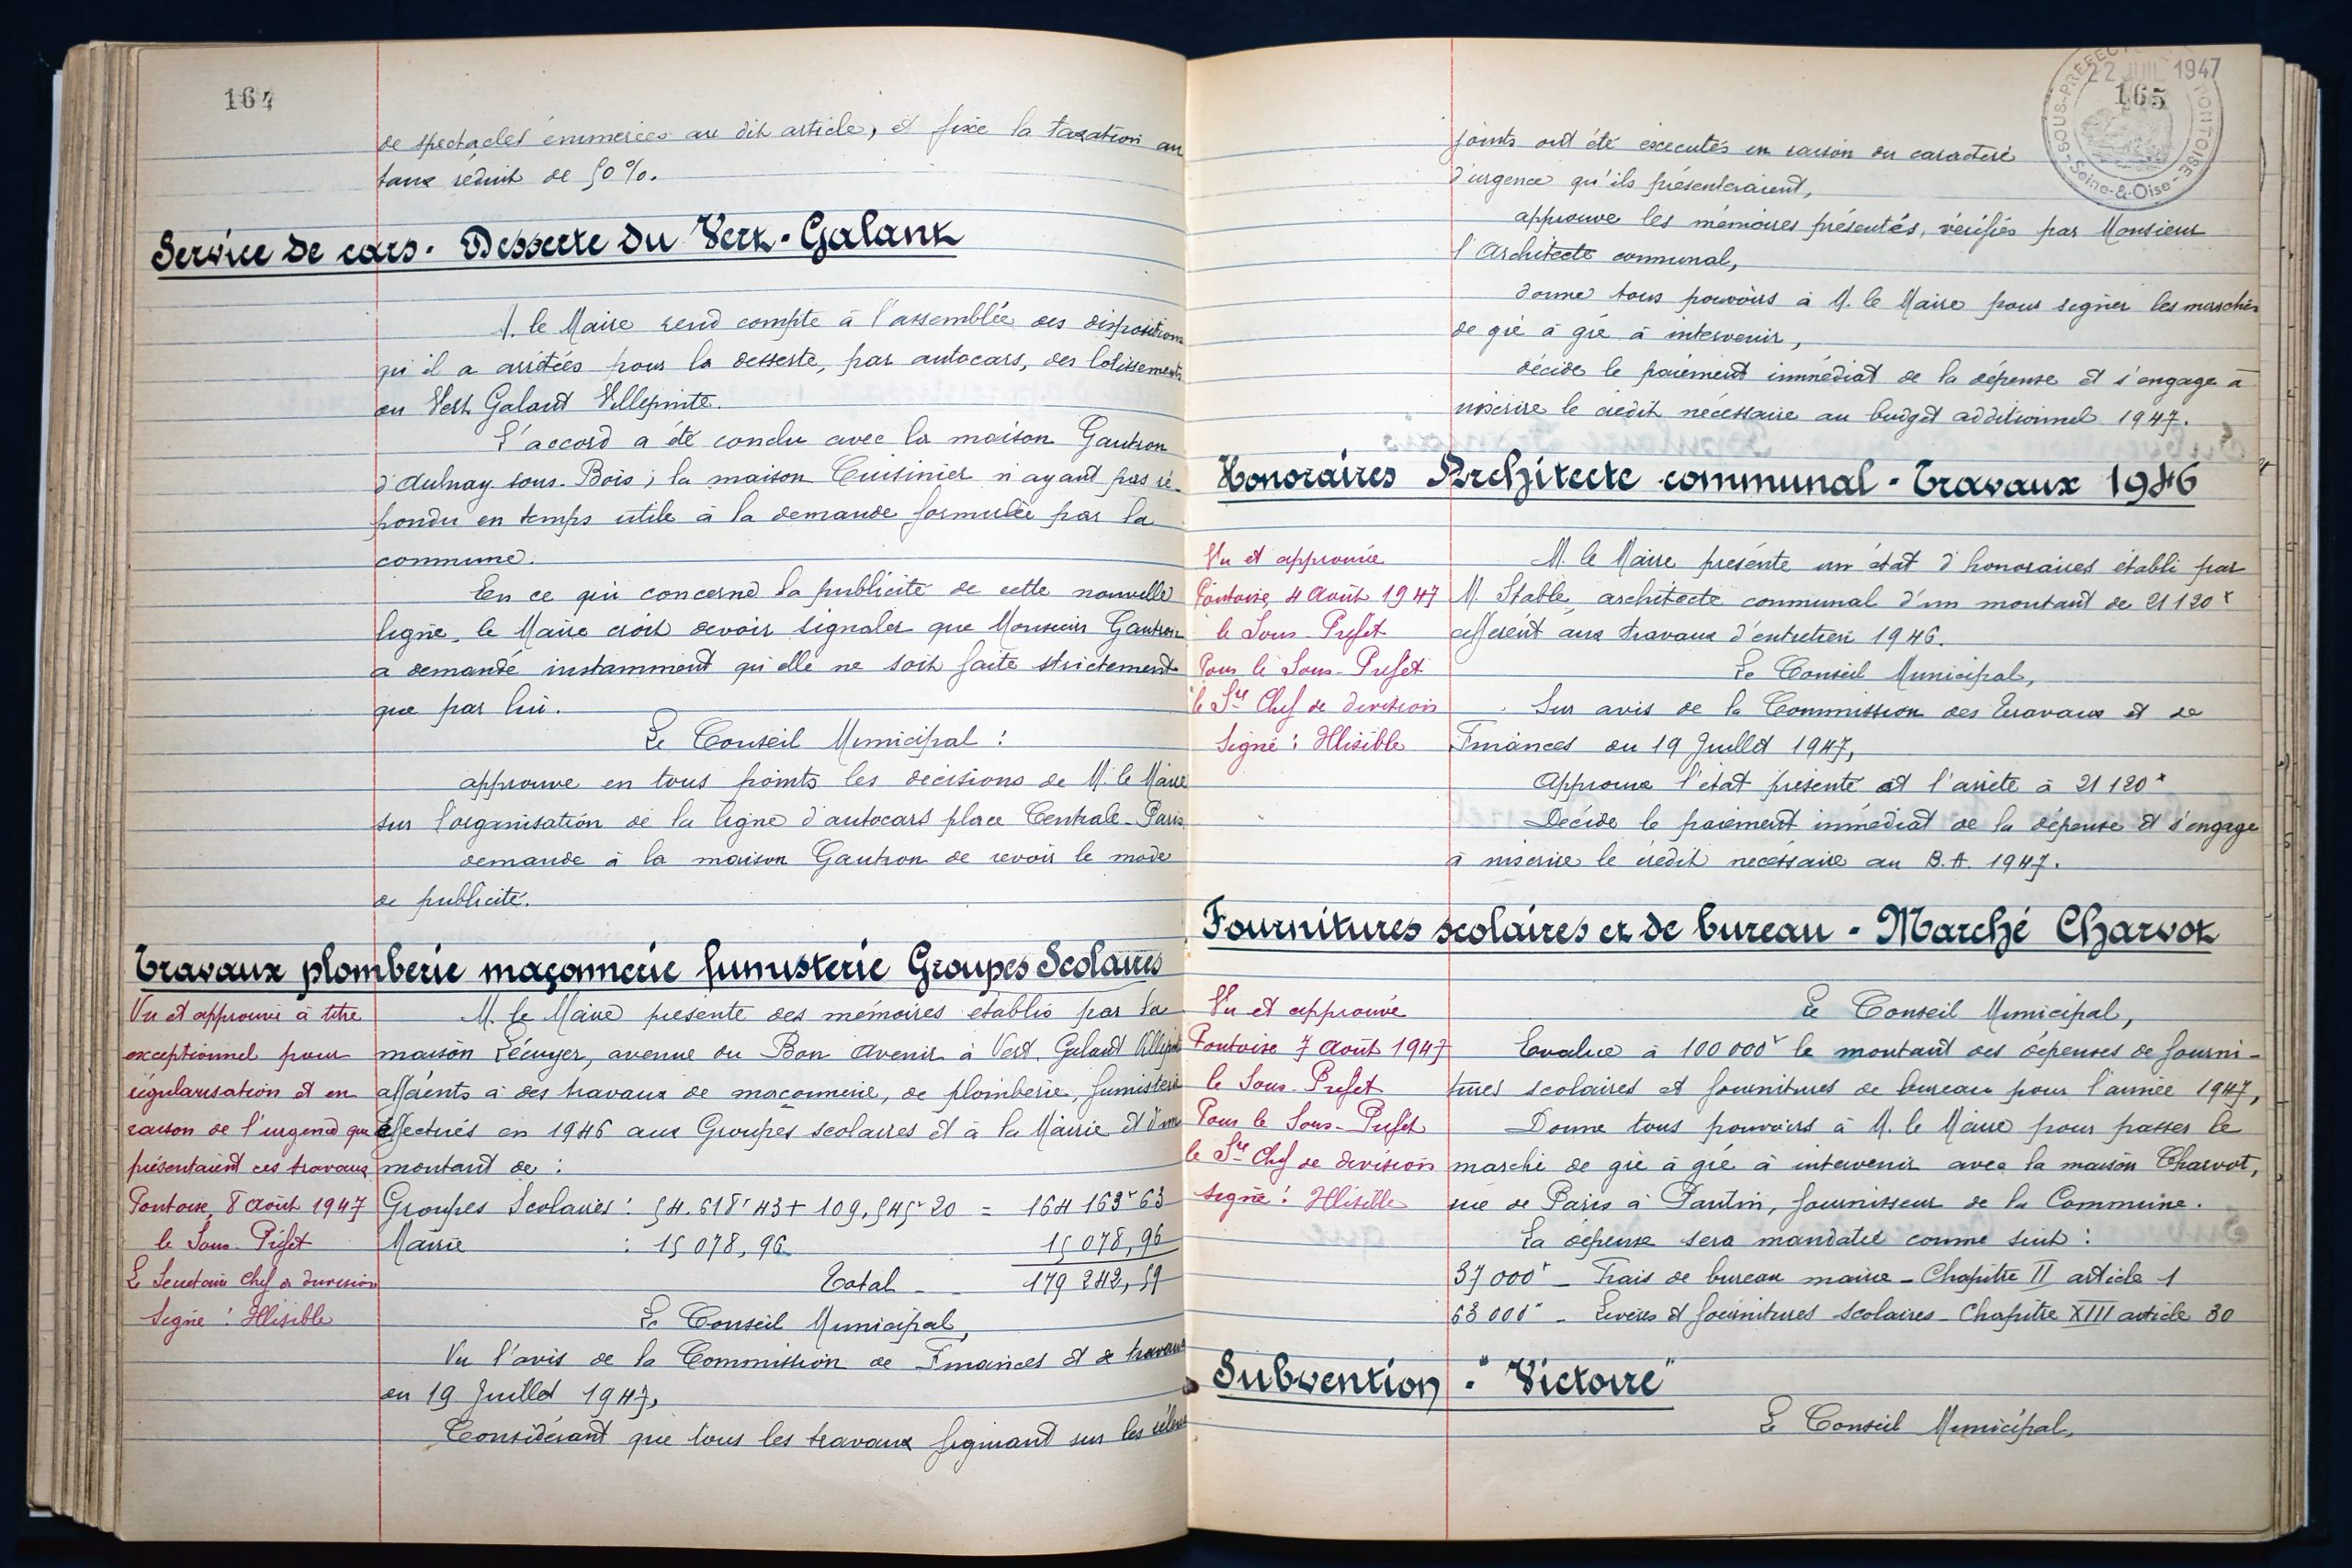 164
de spectacles énumérées au dit article, et fixe la taxation au
taux réduit de 50%.
Service de cars. Desserte du Vert-Galant
M. le Maire rend compte à l'assemblée des dispositions
qu'il a arrêtées pour la desserte, par autocars, des lotissements
du Vert Galant Villepinte.
L'accord a été conclu avec la maison Gautron
d'Aulnay-sous-Bois ; la maison Cuisinier n'ayant pas ré-
pondu en temps utile à la demande formulée par la
commune.
En ce qui concerne la publicité de cette nouvelle
ligne, le Maire croit devoir signaler que Monsieur Gautron
a demandé instamment qu'elle ne soit faite strictement
que par lui.
Le Conseil Municipal :
approuve en tous points les décisions de M. le Maire
sur l'organisation de la ligne d'autocars place Centrale-Paris
demande à la maison Gautron de revoir le mode
de publicité.
Travaux plomberie maçonnerie fumisterie Groupes Scolaires
Vu et approuvé à titre
exceptionnel pour
régularisation et en
raison de l'urgence que
présentaient ces travaux
Pontoise, 8 Août 1947
le Sous-Préfet
Le Secrétaire Chef de division
Signé : Illisible
M. le Maire présente des mémoires établis par la
maison Lécuyer, avenue du Bon Avenir à Vert-Galant Villepinte
afférents à des travaux de maçonnerie, de plomberie, fumisterie
effectués en 1946 aux Groupes scolaires et à la Mairie et d'un
montant de :
Groupes Scolaires : 54.618f43 + 109.545f20 = 164 163f63
Mairie : 15 078,96 15 078,96
Total - - 179 242,59
Le Conseil Municipal,
Vu l'avis de la Commission de Finances et de travaux
du 19 Juillet 1947,
Considérant que tous les travaux figurant sur les relevés
22 JUIL 1947
165
SOUS-PRÉFECTURE PONTOISE
Seine-&-Oise
joints ont été exécutés en raison du caractère
d'urgence qu'ils présenteraient,
approuve les mémoires présentés, vérifiés par Monsieur
l'Architecte communal,
donne tous pouvoirs à M. le Maire pour signer les marchés
de gré à gré à intervenir,
décide le paiement immédiat de la dépense et s'engage à
inscrire le crédit nécessaire au budget additionnel 1947.
Honoraires Architecte communal - Travaux 1946
Vu et approuvée
Pontoise, 4 Août 1947
le Sous-Préfet
Pour le Sous-Préfet
le Sre Chef de division
Signé : Illisible
M. le Maire présente un état d'honoraires établi par
M. Stable, architecte communal d'un montant de 21 120f
afférent aux travaux d'entretien 1946.
Le Conseil Municipal,
Sur avis de la Commission des Travaux et de
Finances du 19 Juillet 1947,
Approuve l'état présenté et l'arrête à 21 120f
Décide le paiement immédiat de la dépense et s'engage
à inscrire le crédit nécessaire au B.A. 1947.
Fournitures scolaires et de bureau - Marché Charvot
Vu et approuvée
Pontoise 7 Août 1947
le Sous-Préfet
Pour le Sous-Préfet
le Sre Chef de division
Signé : Illisible
Le Conseil Municipal,
Evalue à 100 000f le montant des dépenses de fourni-
tures scolaires et fournitures de bureau pour l'année 1947,
Donne tous pouvoirs à M. le Maire pour passer le
marché de gré à gré à intervenir avec la maison Charvot,
rue de Paris à Pantin, fournisseur de la Commune.
La dépense sera mandatée comme suit :
37 000f - Frais de bureau mairie - Chapitre II article 1
63 000f - Livres et fournitures scolaires - Chapitre XIII article 30
Subvention - "Victoire"
Le Conseil Municipal,